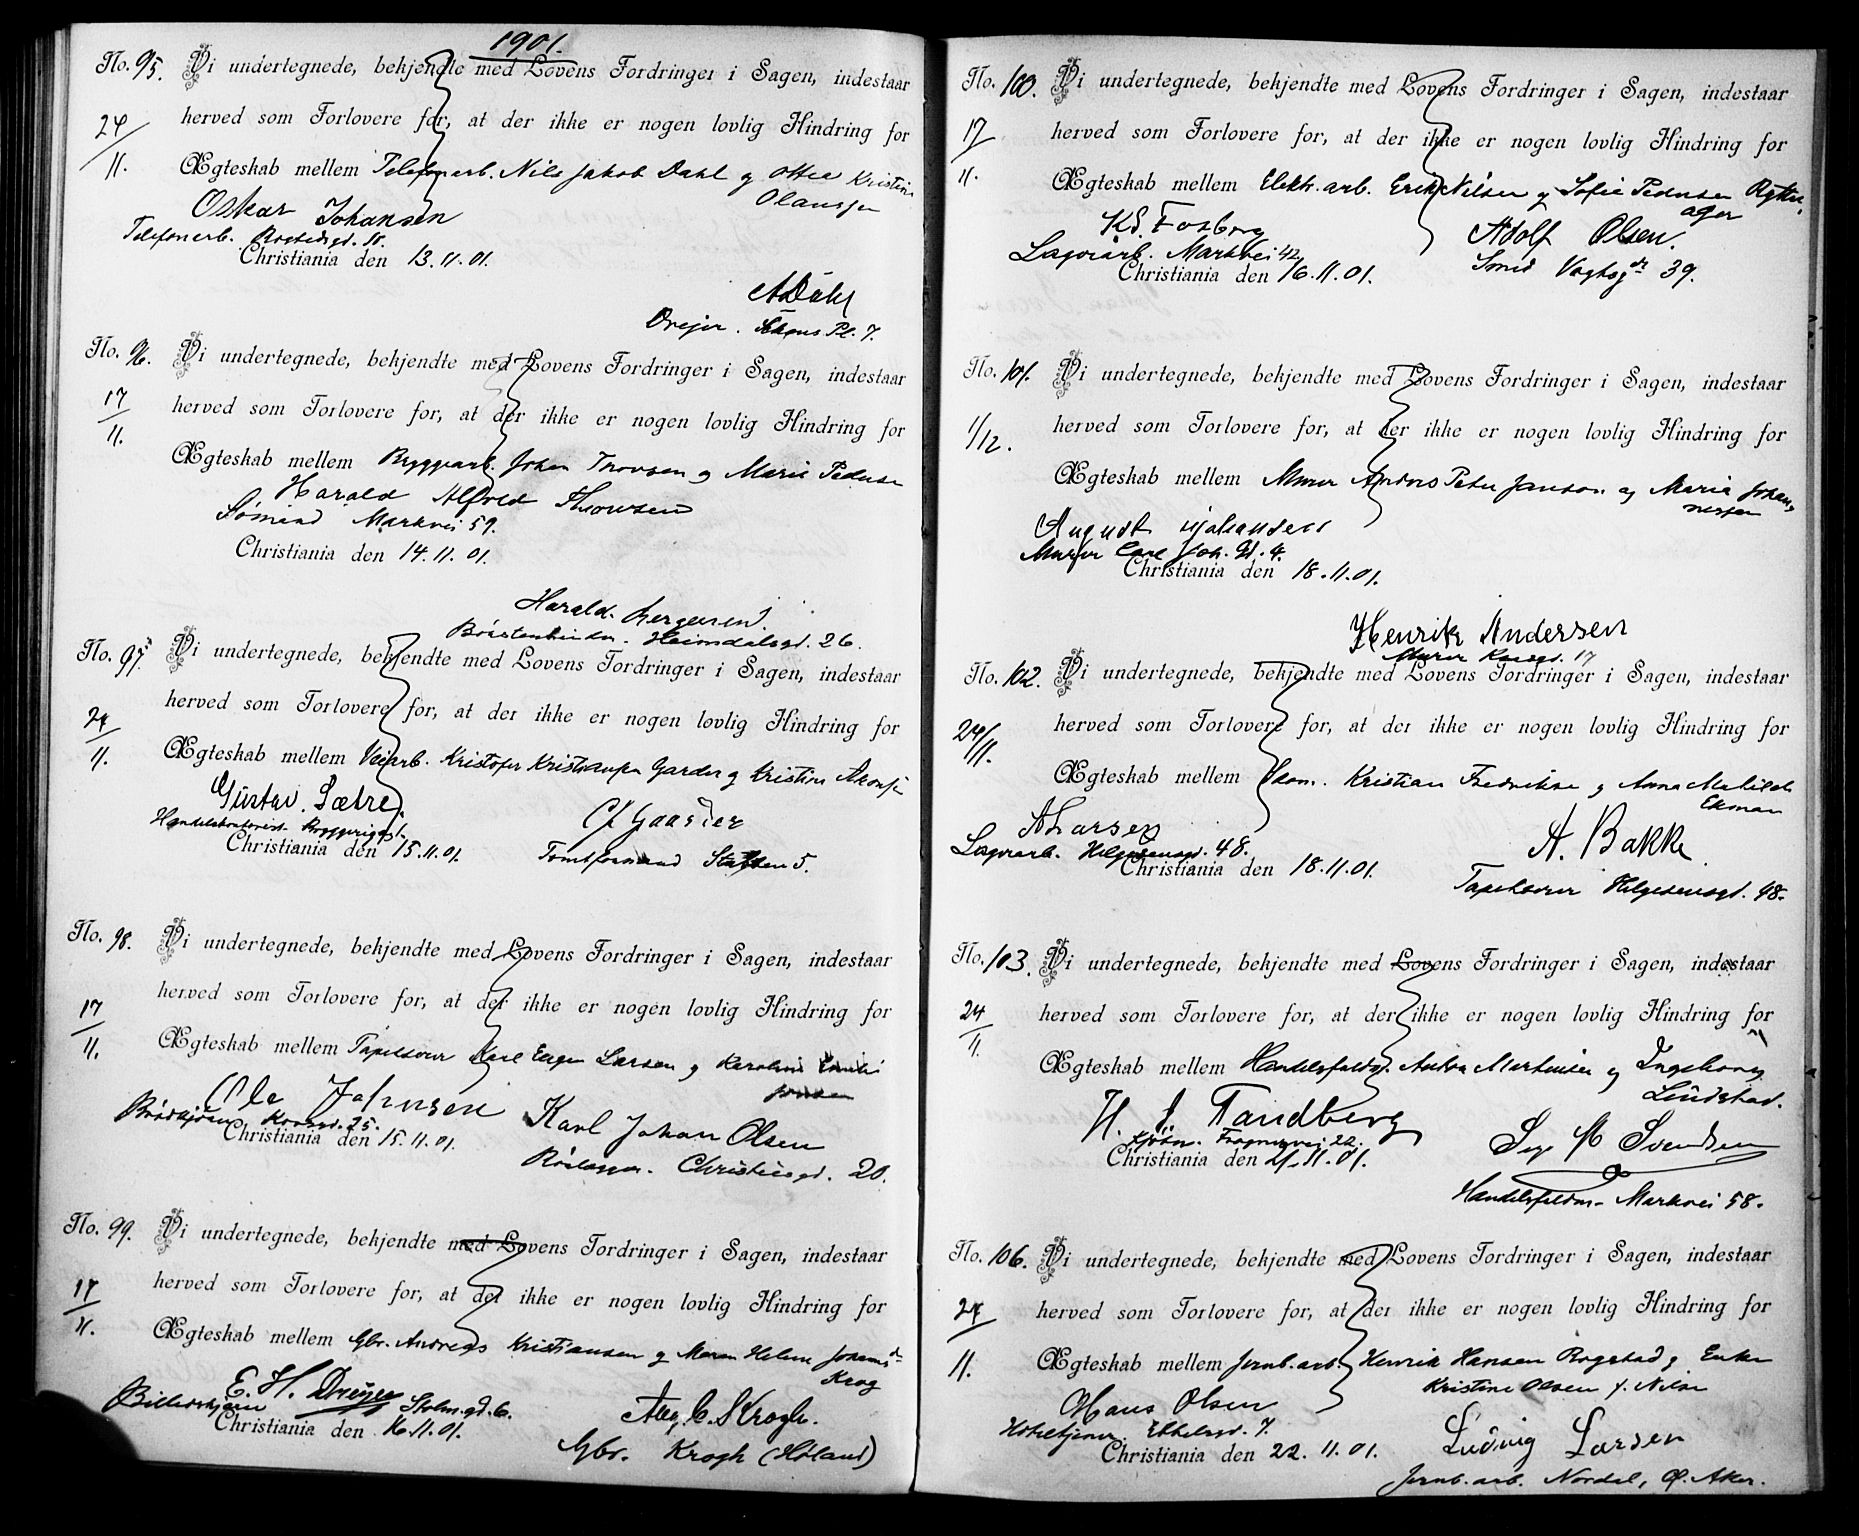 1901.
No. 95. Vi undertegnede, bekjendte med Lovens Fordringer i Sagen, indestaar
24/11. herved som Forlovere for, at der ikke er nogen lovlig Hindring for
Ægteskab mellem Telefonarb. Nils Jakob Dahl og Kristine
Olaussen
Oskar Johansen
Telefonarb.
Christiania den 13.11.01.
A Dahl
Drejer. Pl. 7.
No. 96. Vi undertegnede, bekjendte med Lovens Fordringer i Sagen, indestaar
17/11. herved som Forlovere for, at der ikke er nogen lovlig Hindring for
Ægteskab mellem Bryggarb. Johan Thovsen og Marie Pedersen
Harald Alfred Thowsen
Sømand Markvei 59.
Christiania den 14.11.01.
Harald Jørgensen.
Børstenbinder. Heimdalsgd. 26.
No. 97. Vi undertegnede, bekjendte med Lovens Fordringer i Sagen, indestaar
24/11. herved som Forlovere for, at der ikke er nogen lovlig Hindring for
Ægteskab mellem Veiarb. Kristofer Kristiansen Garder og Kristine
Gustav Sætre.
Christiania den 15.11.01.
Gaarder
Tomtformand 5.
No. 98. Vi undertegnede, bekjendte med Lovens Fordringer i Sagen, indestaar
17/11. herved som Forlovere for, at der ikke er nogen lovlig Hindring for
Ægteskab mellem Tapetserer Karl Larsen og Karoline
Jensen
Ole Johnsen
Brødkjører Korsgd. 25.
Christiania den 15.11.01.
Karl Johan Olsen
Christiesgd. 20.
No. 99. Vi undertegnede, bekjendte med Lovens Fordringer i Sagen, indestaar
17/11. herved som Forlovere for, at der ikke er nogen lovlig Hindring for
Ægteskab mellem Gbr. Andreas Kristiansen og Maren Helene Johansd.
Krog
E. H. Dreyer
Christiania den 16.11.01.
Krogh.
Gbr. Krogh (Høland)
No. 100. Vi undertegnede, bekjendte med Lovens Fordringer i Sagen, indestaar
17/11. herved som Forlovere for, at der ikke er nogen lovlig Hindring for
Ægteskab mellem Elektr. arb. Erik Nilsen og Sofie Pedersen
ager
Kd. Fosberg
Lagerarb. Markvei 42
Christiania den 16.11.01.
Adolf Olsen.
Smed Vogtsgd 39.
No. 101. Vi undertegnede, bekjendte med Lovens Fordringer i Sagen, indestaar
1/12. herved som Forlovere for, at der ikke er nogen lovlig Hindring for
Ægteskab mellem Murer Anders Peter Janson og Maria Johan-
nessen
August Johansen
Murer Carl Joh. Gd. 4.
Christiania den 18.11.01.
Henrik Andersen
Murer Korsgd. 17
No. 102. Vi undertegnede, bekjendte med Lovens Fordringer i Sagen, indestaar
24/11. herved som Forlovere for, at der ikke er nogen lovlig Hindring for
Ægteskab mellem Skom. Kristian Fredriksen og Anna Matilde
Ekman
A Larsen
Lagerarb. Helgesensgd. 48.
Christiania den 18.11.01.
A. Bakke
Tapetserer Helgesensgd. 48.
No. 103. Vi undertegnede, bekjendte med Lovens Fordringer i Sagen, indestaar
24/11. herved som Forlovere for, at der ikke er nogen lovlig Hindring for
Ægteskab mellem Handelsfuldm. Anton Martinsen og Ingeborg
Lundstad.
H. J. Tandberg
Frognervei 22.
Christiania den 21.11.01.
Svendsen
Handelsfuldm. Markvei 58.
No. 106. Vi undertegnede, bekjendte med Lovens Fordringer i Sagen, indestaar
24/11. herved som Forlovere for, at der ikke er nogen lovlig Hindring for
Ægteskab mellem Jernb. arb. Henrik Hansen Rogstad og Enke
Kristine Olsen f. Nilsen
Hans Olsen
Hoteltjener. 7.
Christiania den 22.11.01.
Ludvig Larsen
Jernb. arb. Nordal, Ø. Aker.